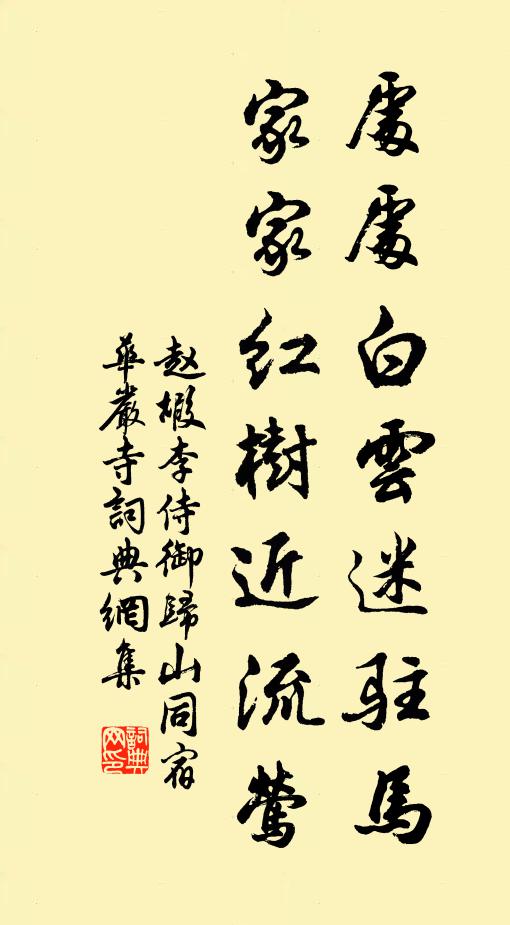 處處白雲迷駐馬
家家紅樹近流鶯
趙嘏李侍御歸山同宿
華嚴寺詞典網集
詞典
网印